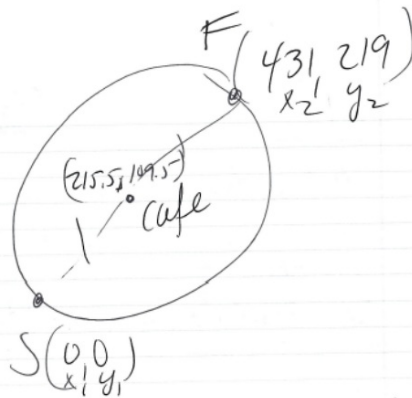 F
(431, 219)
x₂, y₂
(215.5, 109.5)
cafe
S(0,0)
x₁, y₁